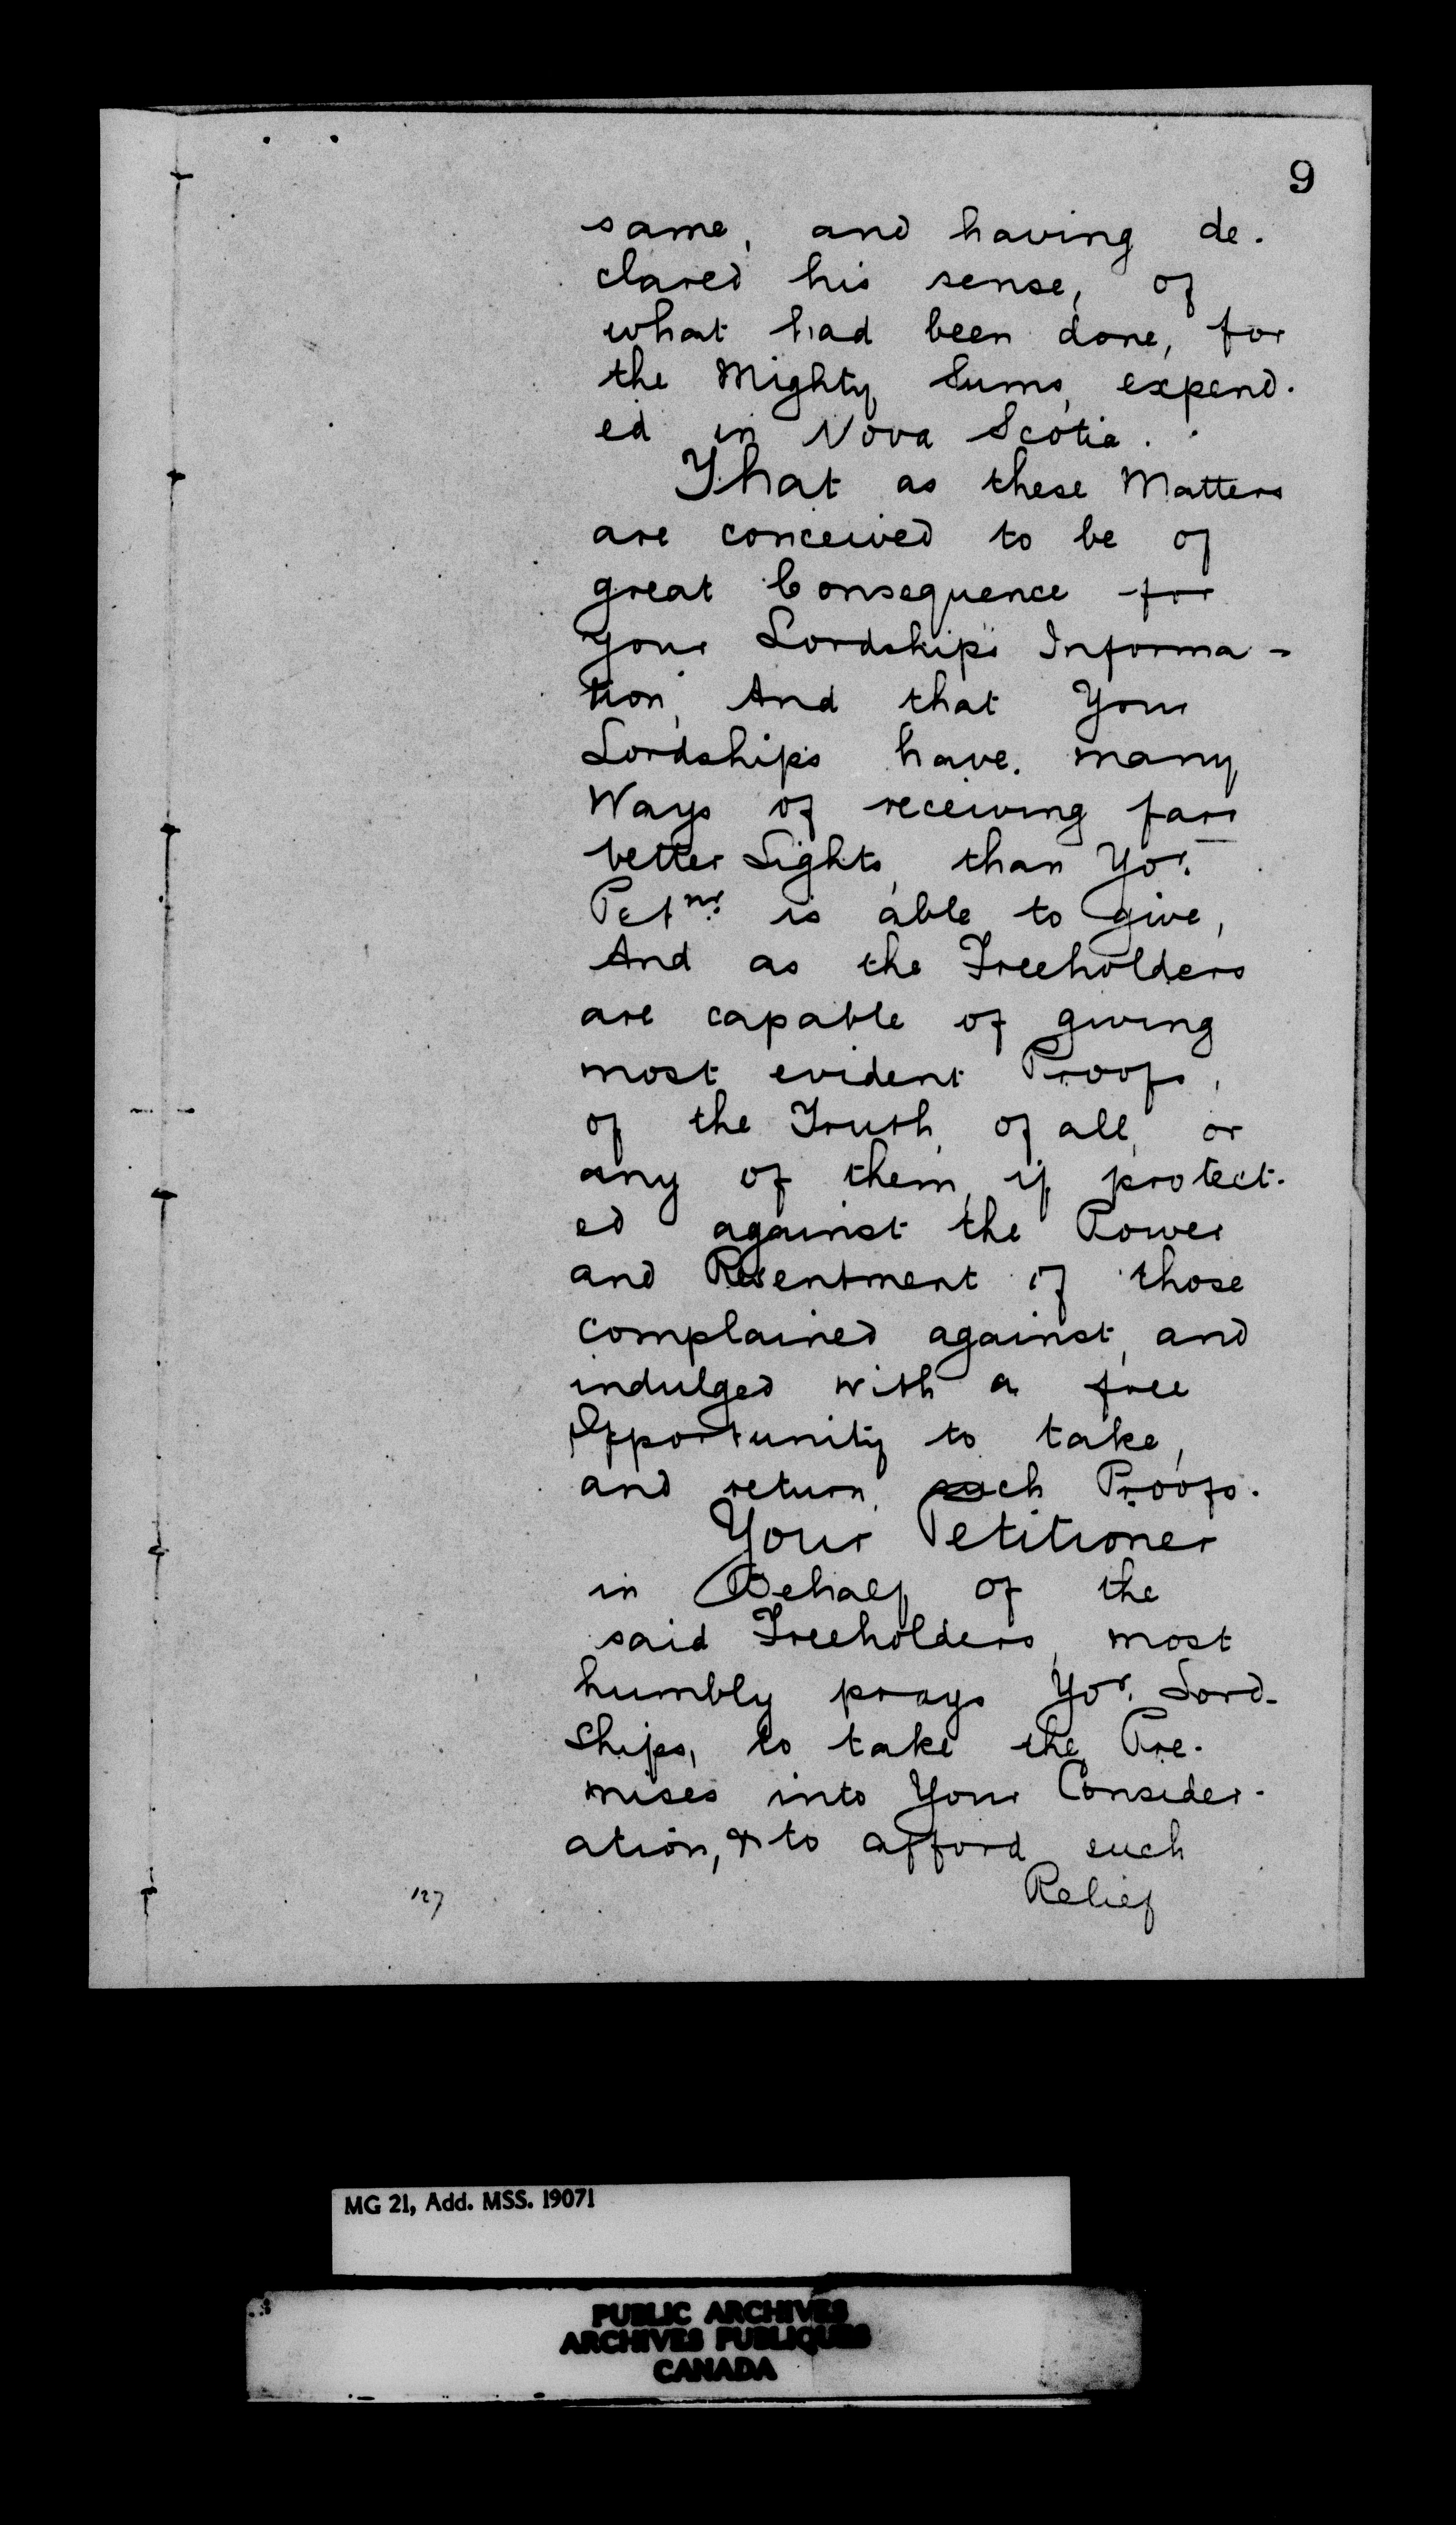 9
same, and having de-
clared his sense, of
what had been done, for
the Mighty Sums, expend-
ed in Nova Scotia.
That as these Matters
are conceived to be of
great Consequence for
your Lordships Informa-
tion, And that Your
Lordships have many
Ways of receiving farr
better Lights, than Yor.
Petnr. is able to give,
And as the Freeholders
are capable of giving
most evident Proofs,
of the Truth, of all, or
any of them, if protect-
ed against the Power
and Resentment of those
complained against, and
indulged with a free
Opportunity to take,
and return, such Proofs.
Your Petitioner
in Behalf of the
said Freeholders, most
humbly prays Yor. Lord-
Ships, to take the Pre-
mises into Your Consider-
ation, & to afford such
Relief
127
MG 21, Add. MSS. 19071
PUBLIC ARCHIVES
ARCHIVES PUBLIQUES
CANADA